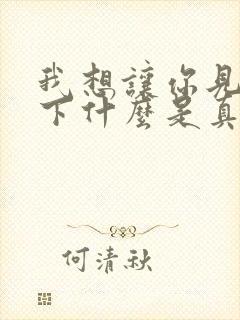 我想讓你見
下什麼是真
何清秋